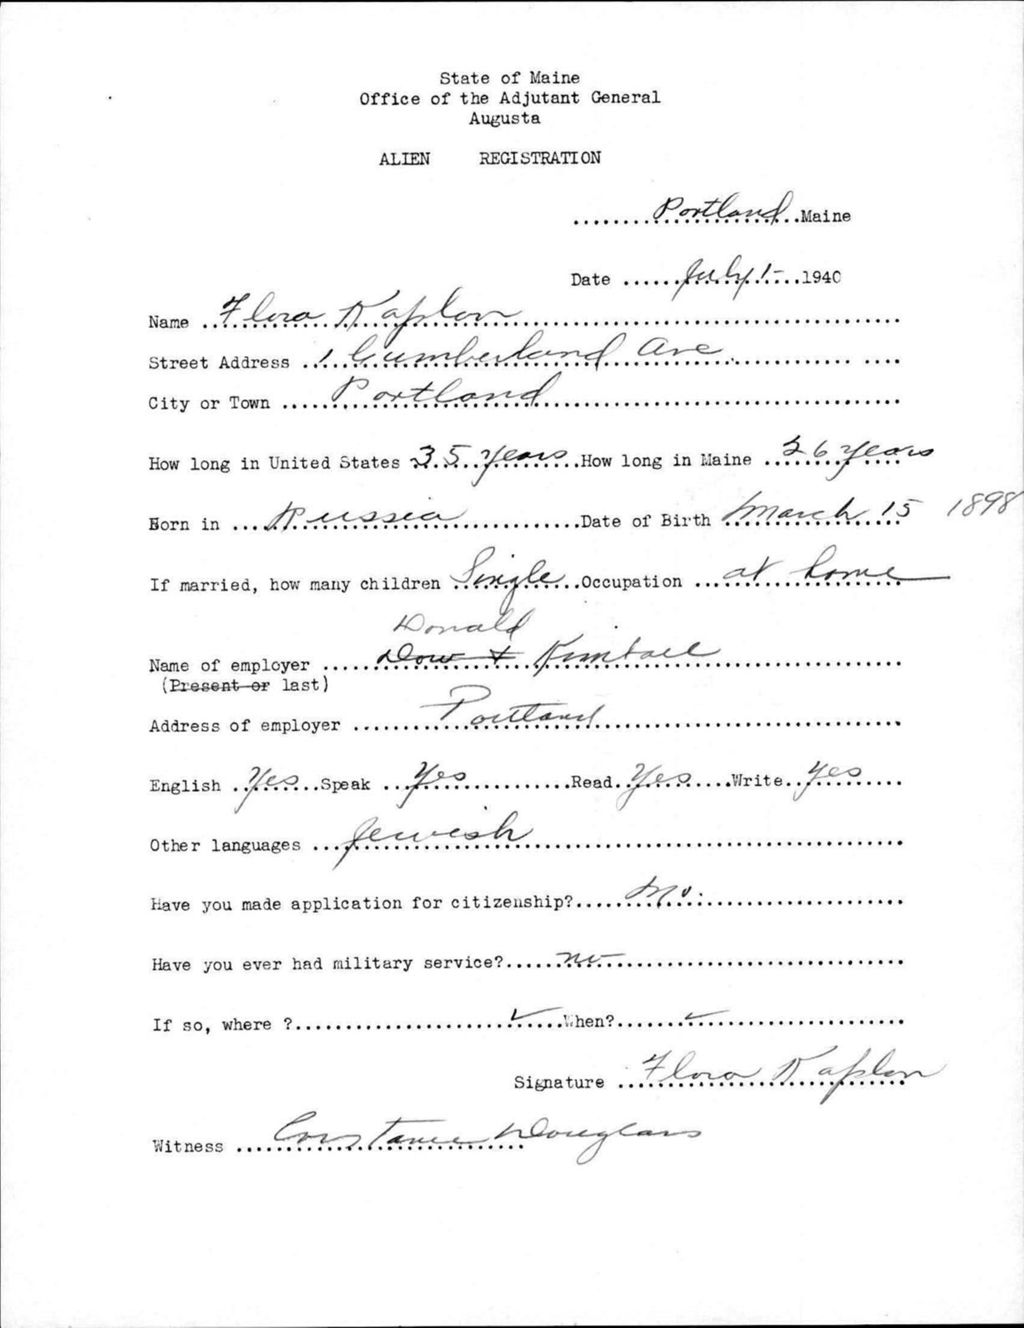 State of Maine
Office of the Adjutant General
Augusta
ALIEN REGISTRATION
........Portland..Maine
Date ......July 1-....1940
Name ..Flora Kaplan..............................
Street Address ..1 Cumberland Ave....................
City or Town .....Portland..............................
How long in United States 35 years..How long in Maine ...26 years
Born in ....Russia..............Date of Birth March 15 1898
If married, how many children .Single...Occupation ...at home
Donald
Name of employer ......Dow & Kimball....................
(Present or last)
Address of employer ........Portland......................
English .Yes...Speak ..Yes...........Read.Yes....Write..yes....
Other languages ...Jewish..............................
Have you made application for citizenship?.....No......................
Have you ever had military service?......no.............................
If so, where ?......................✓.....When?.......✓...................
Signature ...Flora Kaplan
Witness ....Constance Douglass